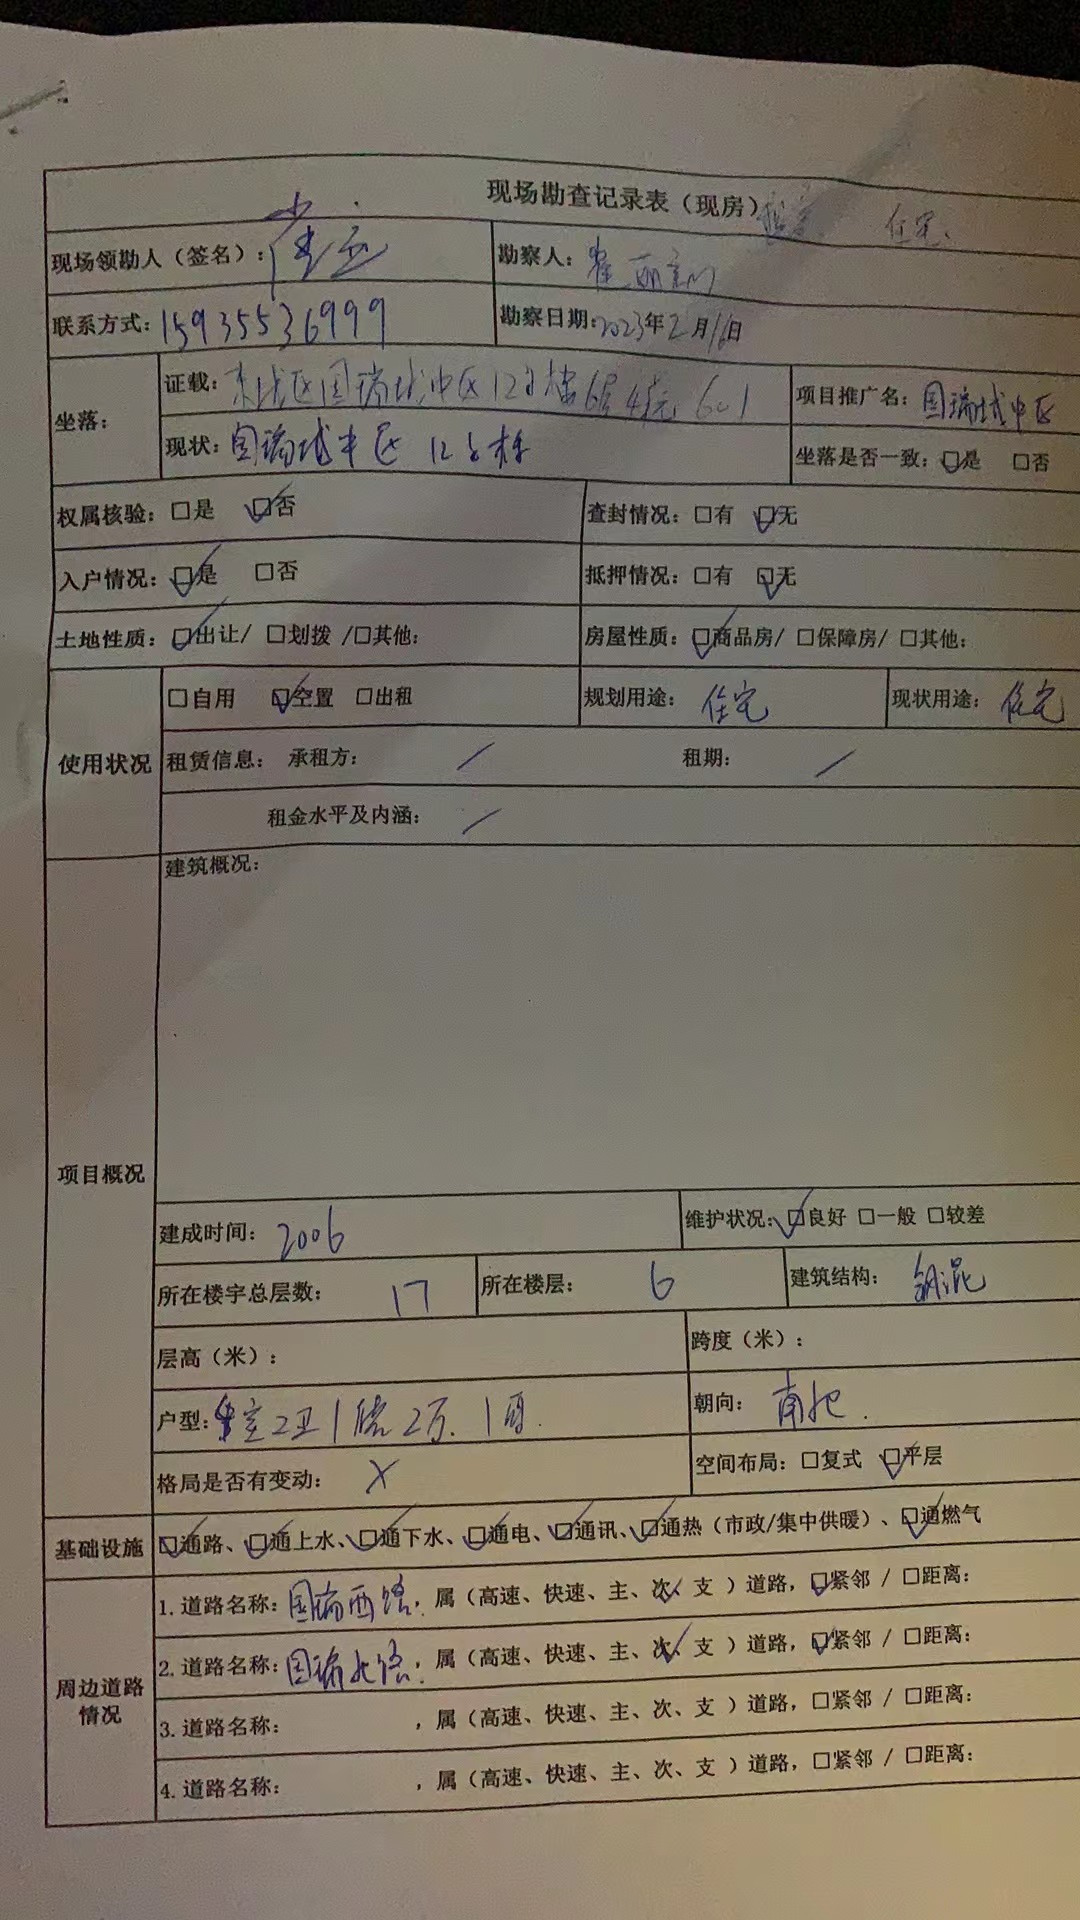 现场勘查记录表（现房） 住宅
现场领勘人（签名）： 勘察人：崔丽
联系方式：15935536999 勘察日期：2023年2月16日
坐落：
证载：东城区国瑞城中区12号楼6层4单元601 项目推广名：国瑞城中区
现状：国瑞城中区 12号楼 坐落是否一致：☑是 □否
权属核验：□是 ☑否 查封情况：□有 ☑无
入户情况：☑是 □否 抵押情况：□有 ☑无
土地性质：☑出让/ □划拨 /□其他： 房屋性质：☑商品房/ □保障房/ □其他：
使用状况
□自用 ☑空置 □出租 规划用途：住宅 现状用途：住宅
租赁信息： 承租方： / 租期： /
租金水平及内涵： /
项目概况
建筑概况：
建成时间：2006 维护状况：☑良好 □一般 □较差
所在楼宇总层数：17 所在楼层：6 建筑结构：钢混
层高（米）： 跨度（米）：
户型：室2卫1 2 1 朝向：南北
格局是否有变动：X 空间布局：□复式 ☑平层
基础设施 ☑通路、☑通上水、☑通下水、☑通电、☑通讯、☑通热（市政/集中供暖）、☑通燃气
周边道路情况
1.道路名称：国瑞西路，属（高速、快速、主、次✓ 支 ）道路，☑紧邻 / □距离：
2.道路名称：国瑞北路，属（高速、快速、主、次✓ 支 ）道路，☑紧邻 / □距离：
3.道路名称： ，属（高速、快速、主、次、支 ）道路，□紧邻 / □距离：
4.道路名称： ，属（高速、快速、主、次、支 ）道路，□紧邻 / □距离：